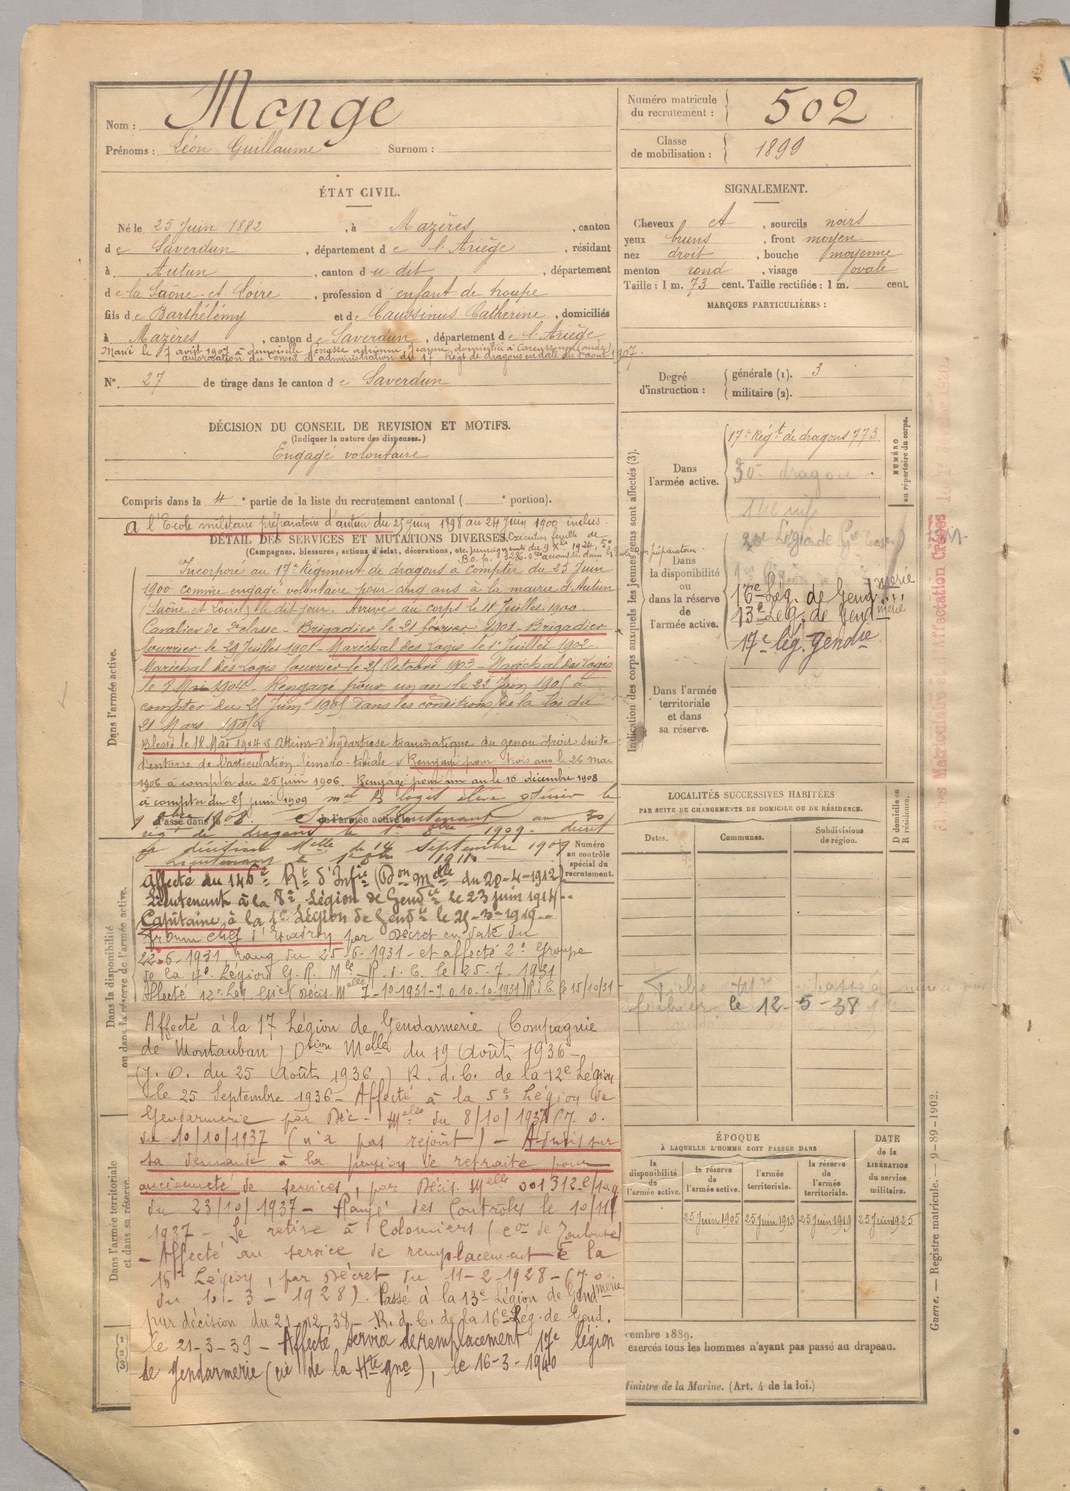 Nom : Monge
Prénoms : Léon Guillaume Surnom :
Numéro matricule du recrutement : 502
Classe de mobilisation : 1899
ÉTAT CIVIL.
Né le 25 Juin 1882, à Mazères, canton
de Saverdun, département de l'Ariège, résidant
à Autun, canton du dit, département
de la Saône-et-Loire, profession d'enfant de troupe
fils de Barthélémy et de Caussinus Catherine, domiciliés
à Mazères, canton de Saverdun, département de l'Ariège
Marié le 17 août 1907 à demoiselle
autorisation du Conseil d'administration du 17e Régt de dragons en date du août 1907.
N° 27 de tirage dans le canton de Saverdun
SIGNALEMENT.
Cheveux et, sourcils noirs
yeux bruns, front moyen
nez droit, bouche moyenne
menton rond, visage ovale
Taille : 1 m. 73 cent. Taille rectifiée : 1 m. cent.
MARQUES PARTICULIÈRES :
Degré d'instruction : générale (1). 3
militaire (2).
DÉCISION DU CONSEIL DE REVISION ET MOTIFS.
(Indiquer la nature des dispenses.)
Engagé volontaire
Compris dans la 4e partie de la liste du recrutement cantonal ( e portion).
A l'Ecole militaire préparatoire d'Autun du 25 juin 1898 au 24 Juin 1900 inclus.
DÉTAIL DES SERVICES ET MUTATIONS DIVERSES
(Campagnes, blessures, actions d'éclat, décorations, etc.
Dans l'armée active.
Incorporé au 17e Régiment de dragons à compter du 25 Juin
1900 comme engagé volontaire pour cinq ans à la mairie d'Autun
(Saône et Loire) le dit jour. Arrivé au corps le 11 Juillet 1900.
Cavalier de 2e classe - Brigadier le 21 février 1901 - Brigadier
fourrier le 29 Juillet 1901 - Maréchal des Logis le 1er Juillet 1902 -
Maréchal des Logis fourrier le 21 Octobre 1903 - Maréchal des Logis
le 8 Mai 1904 - Rengagé pour un an le 22 Juin 1905 à
compter du 25 Juin 1905 dans les conditions de la loi du
21 Mars 1905
Blessé le 18 Mai 1904 Atteint d'hydarthrose traumatique du genou droit suite
d'entorse de l'articulation fémoro-tibiale Rengagé pour trois ans le 26 mai
1906 à compter du 25 juin 1906. Rengagé pour un an le 10 décembre 1908
à compter du 25 juin 1909
lieutenant au 30
régt de dragons le 1er 8bre 1909.
décision Mlle de 14 Septembre 1909
Lieutenant le 1er 8bre 1911.
Affecté au 146e Rt d'Infie (Don Mlle du 20-4-1912)
Lieutenant à la 8e Légion de Gendie le 23 juin 1914
Capitaine à la 1e Légion de Gendie le 21-3-1919
par Décret en date du
22-6-1931 rang du 25-6-1931 - et affecté 2e Groupe
de la 4e Légion G.R.M. R.d.C. le 25-7-1931
Affecté 12e Lég Décis. Mlle 7-10-1931 J.O. 10-10-1931) R.d.C. le 15/10/31
Affecté à la 17 Légion de Gendarmerie (Compagnie
de Montauban) Dsion Mlle du 19 Août 1936 -
(J.O. du 25 Août 1936) R.d.C. de la 12e Légion
le 25 Septembre 1936 - Affecté à la 5e Légion de
Gendarmerie par Déc. Mlle du 8/10/1937 (J.O.
du 10/10/1937 (n'a pas rejoint) - Admis sur
sa demande à la pension de retraite pour
ancienneté de services, par Décis. Mlle
du 23/10/1937 - Rayé des Contrôles le 10/11/
1937 - Se retire à Colomiers (con de Toulouse)
- Affecté au service de remplacement de la
16e Légion, par Décret du 11-2-1928 - (J.O.
du 10-3-1928) Passé à la 13e Légion de Gendmerie
par décision du 21-12-38 - R.d.C. de la 16e Lég. de Gend.
le 21-3-39 - Affecté service de remplacement 17e légion
de gendarmerie (cie de la Hte gne), le 16-3-1940
Dans la disponibilité ou dans la réserve de l'armée active.
Dans l'armée territoriale et dans sa réserve.
Numéro au contrôle spécial du recrutement.
Indication des corps auxquels les jeunes gens sont affectés (3).
NUMÉRO au répertoire du corps.
Dans l'armée active. 17e Régt de dragons 773
30e dragons
146 inf
Dans la disponibilité ou dans la réserve de l'armée active.
16e Lég. de Gendmerie
13e Lég. de Gendmerie
17e lég. Gendie
Dans l'armée territoriale et dans sa réserve.
LOCALITÉS SUCCESSIVES HABITÉES
PAR SUITE DE CHANGEMENTS DE DOMICILE OU DE RÉSIDENCE.
Dates. Communes. Subdivisions de région. D domicile R résidence.
fichier le 12-5-38
ÉPOQUE
À LAQUELLE L'HOMME DOIT PASSER DANS
DATE DE LA LIBÉRATION DU SERVICE MILITAIRE.
la disponibilité de l'armée active. la réserve de l'armée active. l'armée territoriale. la réserve de l'armée territoriale.
25 Juin 1905 25 Juin 1913 25 Juin 1919 25 Juin 1925
(1)
(2)
(3)
cembre 1889.
exercés tous les hommes n'ayant pas passé au drapeau.
Ministre de la Marine. (Art. 4 de la loi.)
Guerre. — Registre matricule. — 9-89-1902.